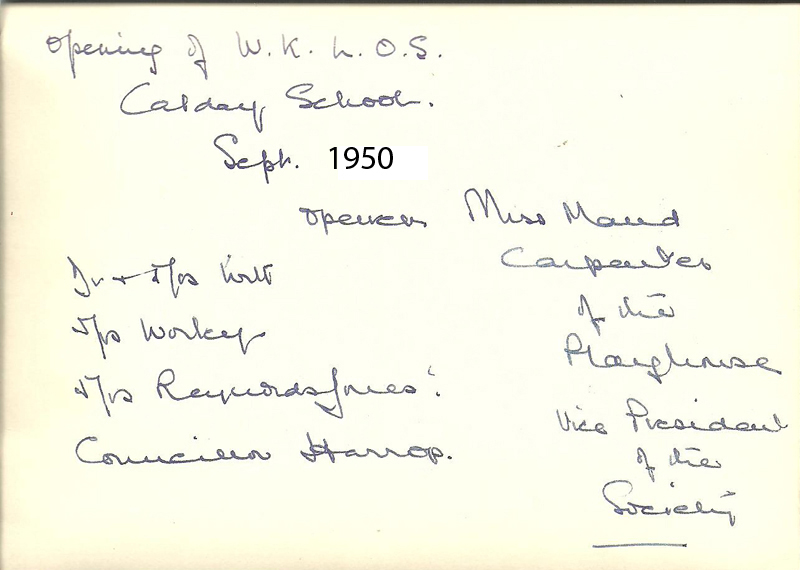 Opening of W.K.L.O.S.
Calday School.
Sept. 1950
opener Miss Maud
Carpenter
of the
Playhouse
Vice President
of the
Society
Dr + M/s
M/s Worley
M/s Reynolds Jones.
Councillor Harrop.